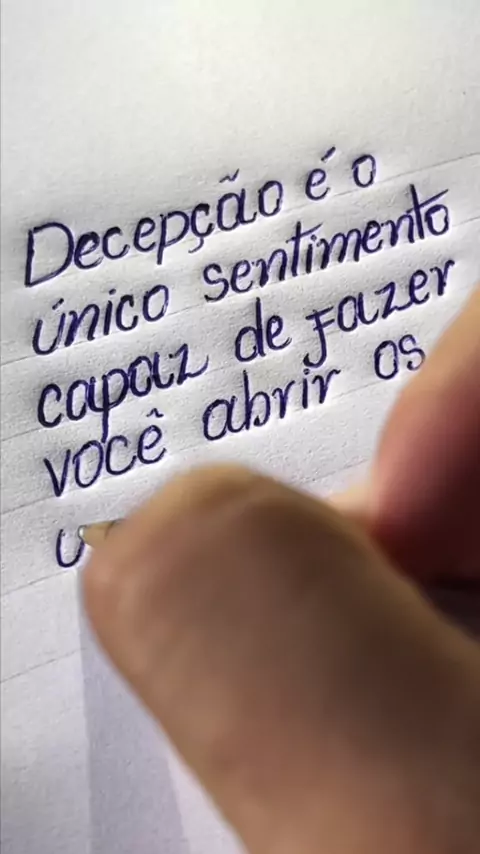 Decepção é o
único sentimento
capaz de fazer
você abrir os